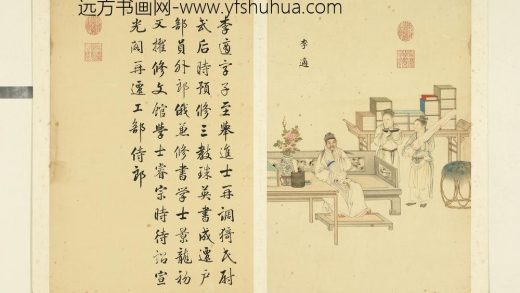 远方书画网 www.yfshuhua.com
李適
李適字子至舉進士再調猗氏尉
武后時預修三教珠英書成遷戶
部員外郎俄兼修書學士景龍初
又擢修文館學士睿宗時待詔宣
光閣再遷工部侍郎